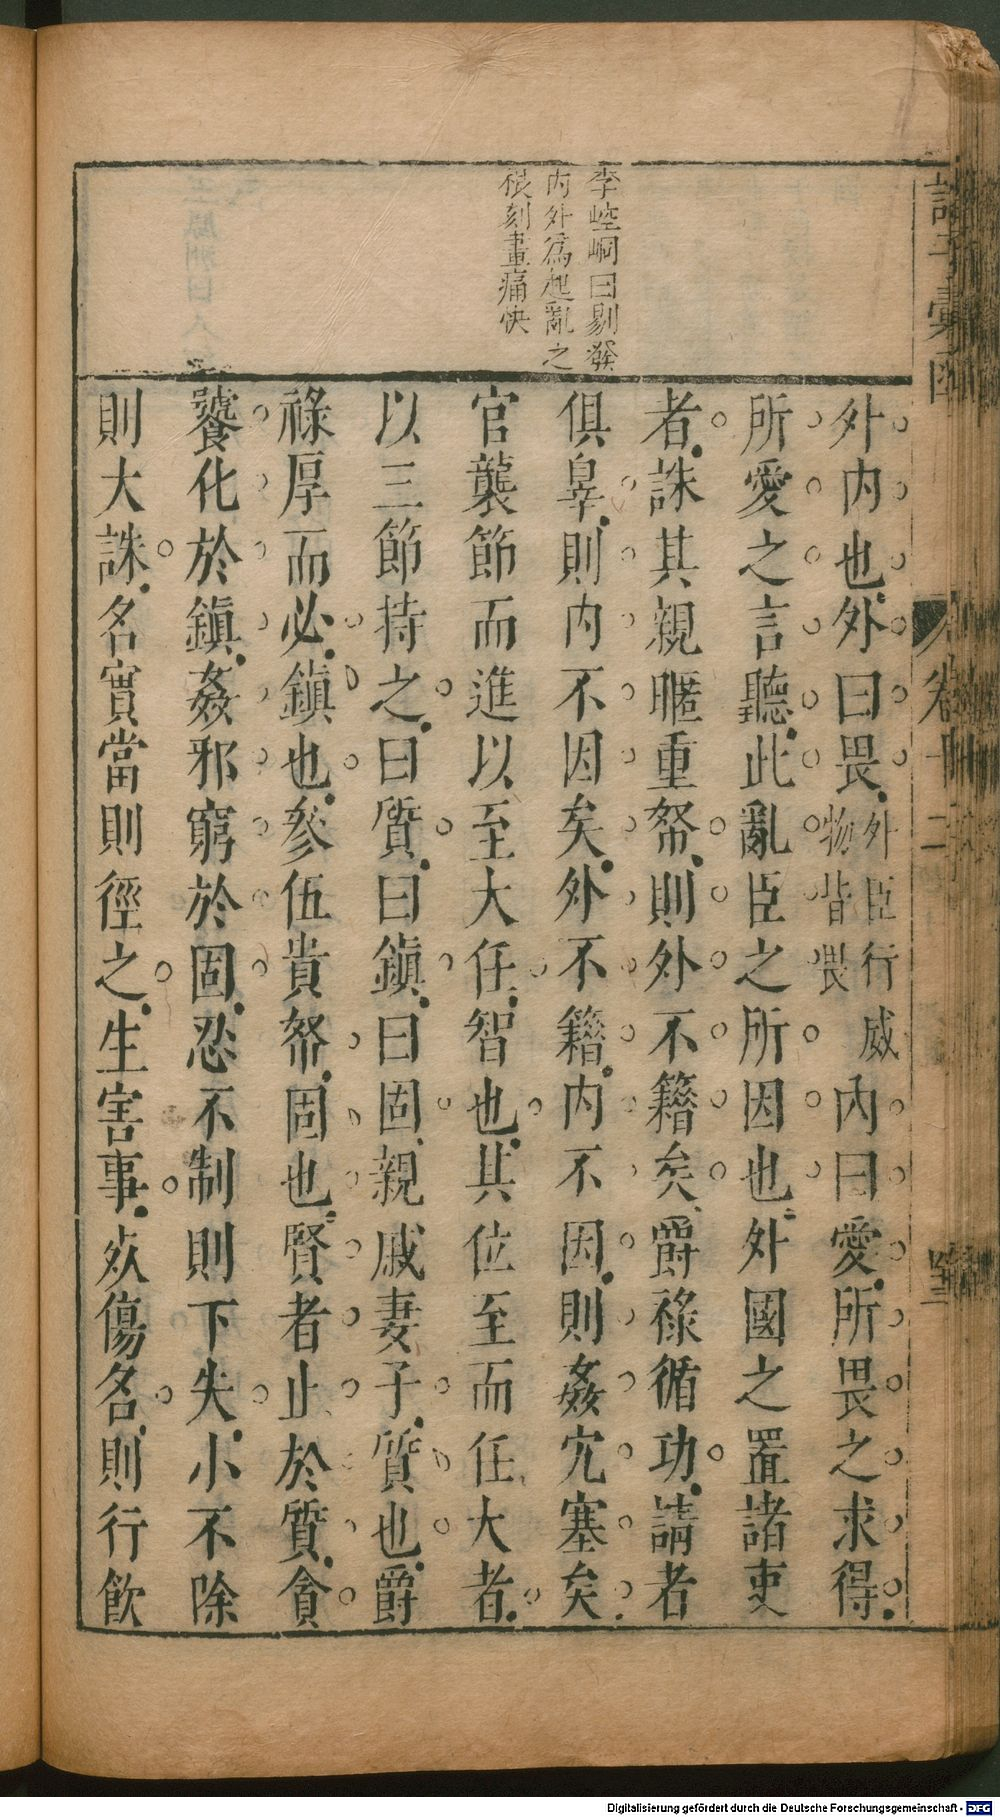 李崆峒曰剔發
内外爲起亂之
根刻畫痛快
外内也外曰畏外臣行威物皆畏内曰愛所畏之求得
所愛之言聽此亂臣之所因也外國之置諸吏
者誅其親暱重帑則外不籍矣爵祿循功請者
俱辠則内不因矣外不籍内不因則姦宄塞矣
官襲節而進以至大任智也其位至而任大者
以三節持之曰質曰鎭曰固親戚妻子質也爵
祿厚而必鎭也參伍貴帑固也賢者止於質貪
饕化於鎭姦邪窮於固忍不制則下失小不除
則大誅名實當則徑之生害事㱼傷名則行飲
卷十二
Digitalisierung gefördert durch die Deutsche Forschungsgemeinschaft - DFG